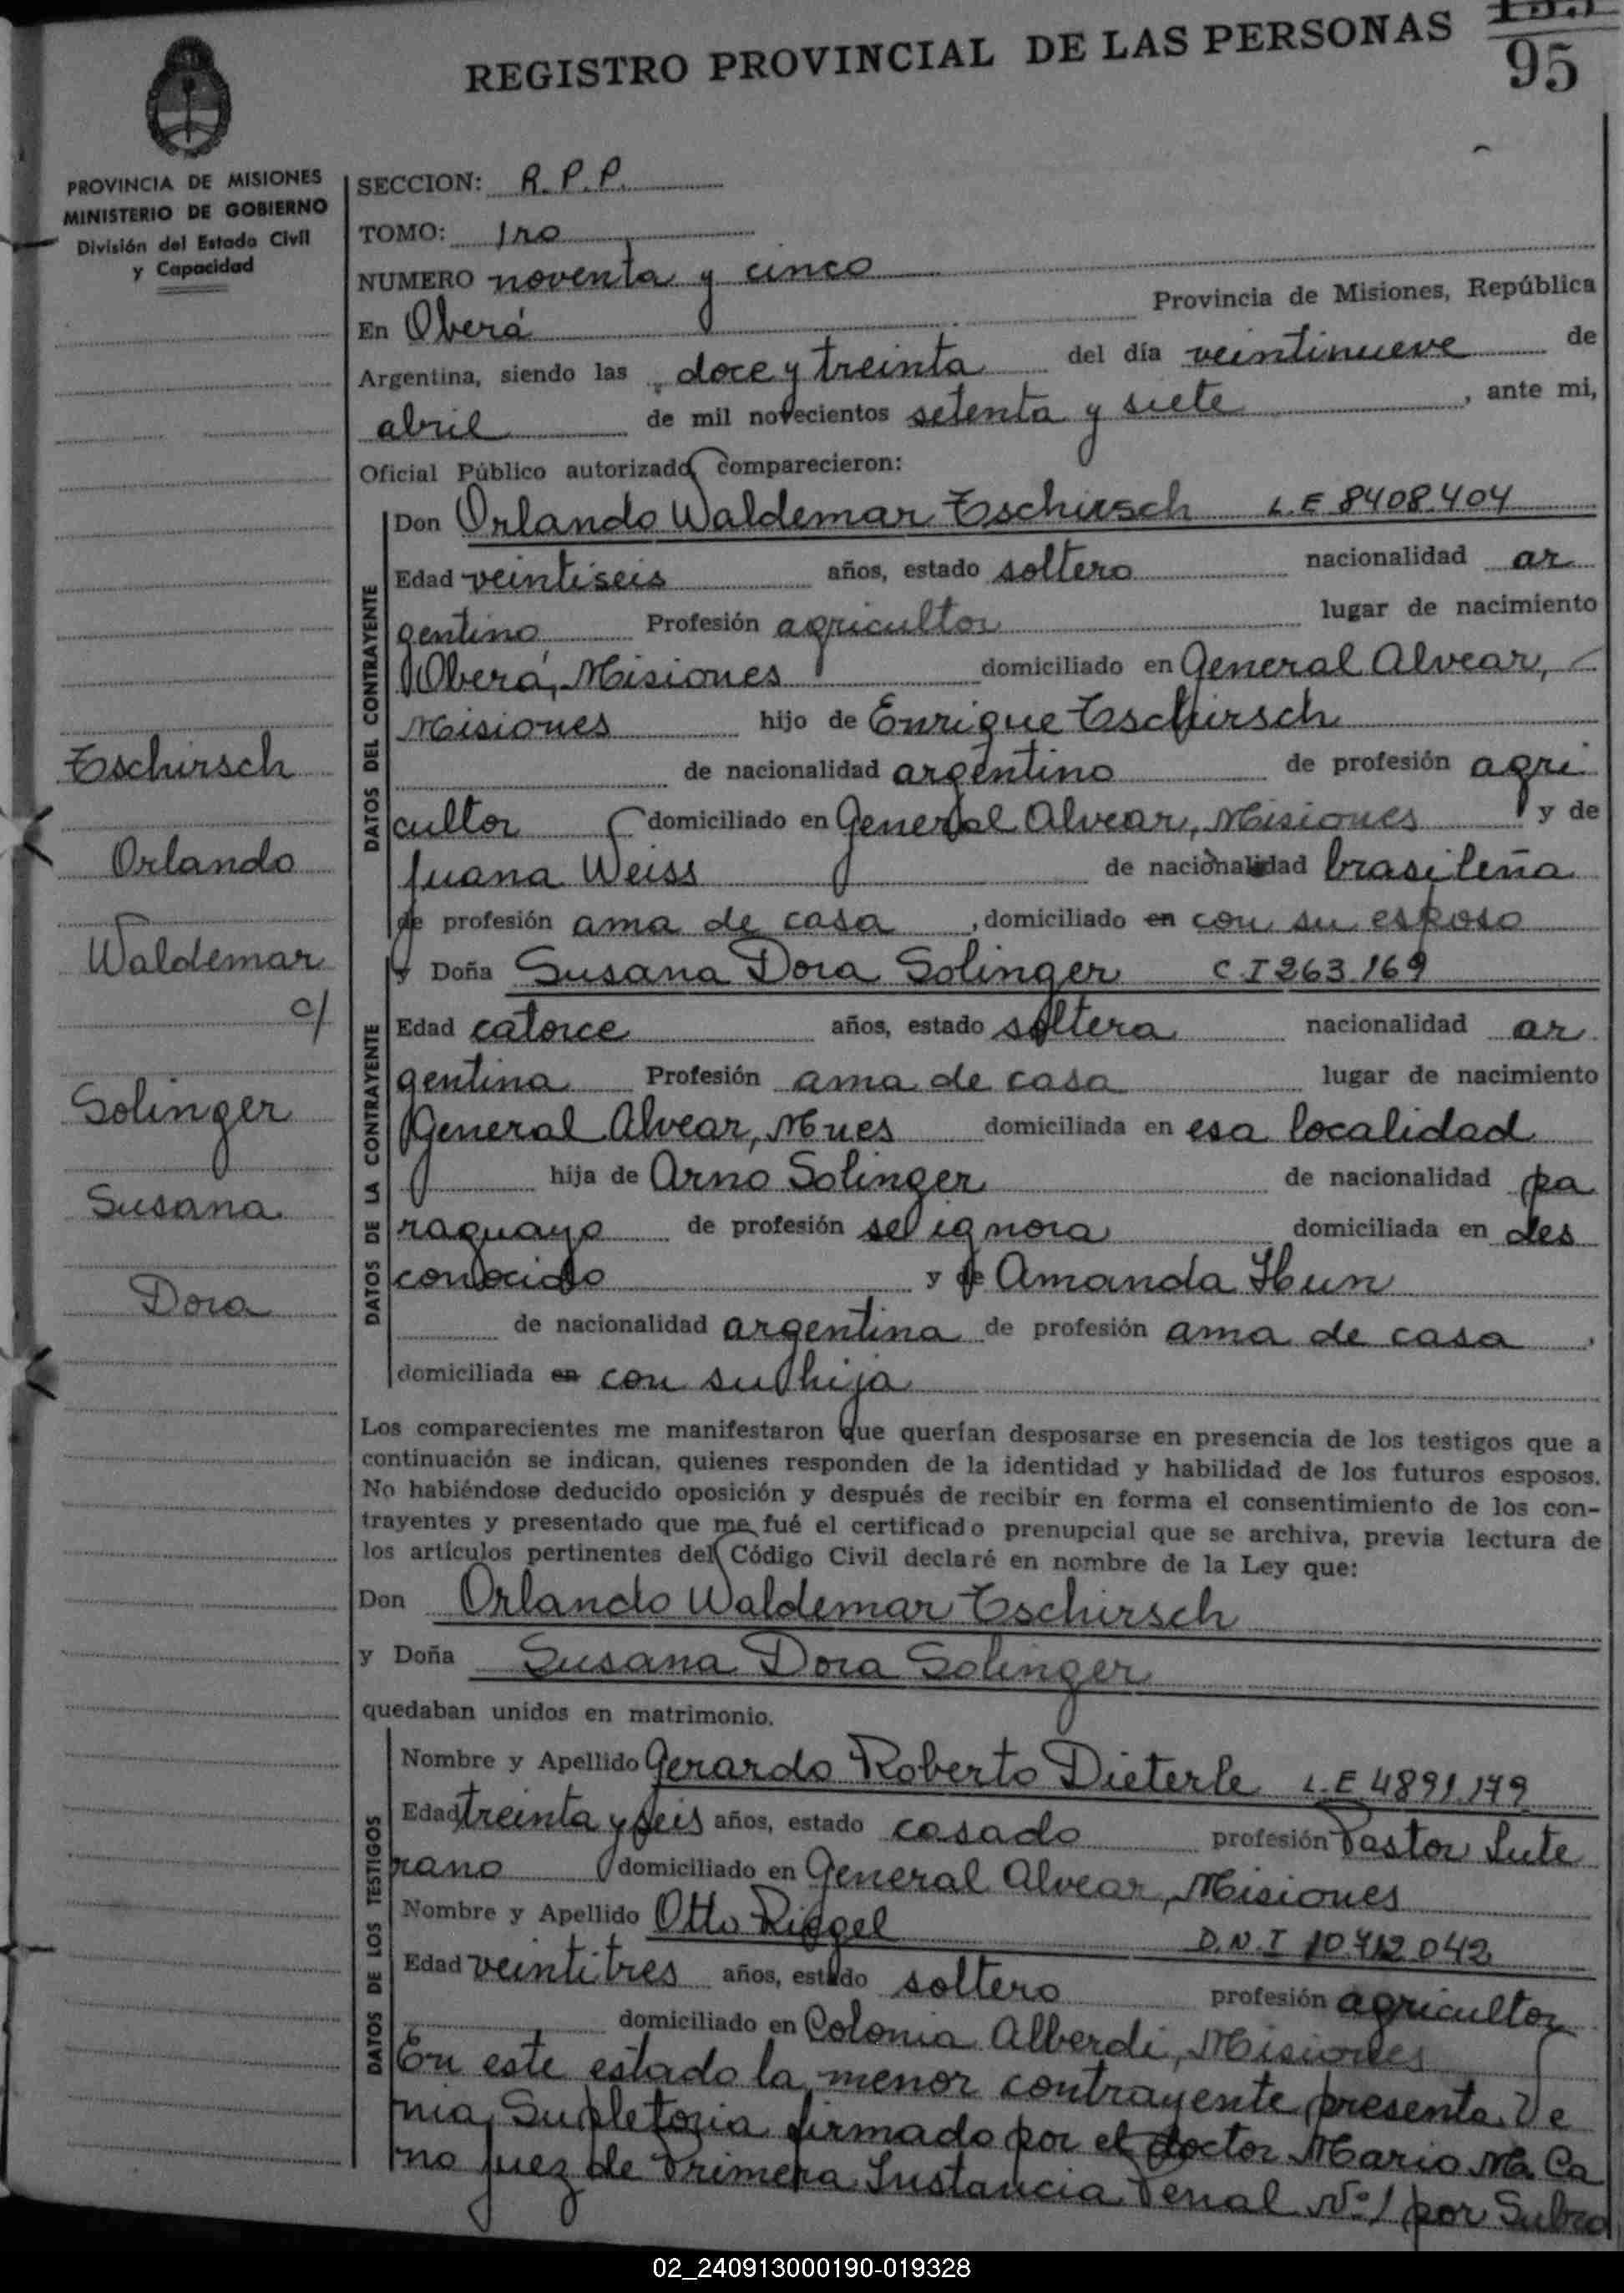 REGISTRO PROVINCIAL DE LAS PERSONAS
95
PROVINCIA DE MISIONES
MINISTERIO DE GOBIERNO
División del Estado Civil
y Capacidad
SECCION: R.P.P.
TOMO: 1ro
NUMERO noventa y cinco
En Oberá Provincia de Misiones, República
Argentina, siendo las doce y treinta del día veintinueve de
abril de mil novecientos setenta y siete, ante mi,
Oficial Público autorizado comparecieron:
DATOS DEL CONTRAYENTE
Don Orlando Waldemar Tschirsch L.E 8408.404
Edad veintiseis años, estado soltero nacionalidad ar
gentino Profesión agricultor lugar de nacimiento
Oberá, Misiones domiciliado en General Alvear,
Misiones hijo de Enrique Tschirsch
de nacionalidad argentino de profesión agri
cultor domiciliado en General Alvear, Misiones y de
Juana Weiss de nacionalidad brasileña
de profesión ama de casa, domiciliado en con su esposo
DATOS DE LA CONTRAYENTE
y Doña Susana Dora Solinger C.I 263.169
Edad catorce años, estado soltera nacionalidad ar
gentina Profesión ama de casa lugar de nacimiento
General Alvear, Mnes domiciliada en esa localidad
hija de Arno Solinger de nacionalidad pa
raguayo de profesión se ignora domiciliada en des
conocido y de Amanda Hun
de nacionalidad argentina de profesión ama de casa,
domiciliada en con su hija
Tschirsch
Orlando
Waldemar
c/
Solinger
Susana
Dora
Los comparecientes me manifestaron que querían desposarse en presencia de los testigos que a
continuación se indican, quienes responden de la identidad y habilidad de los futuros esposos.
No habiéndose deducido oposición y después de recibir en forma el consentimiento de los con-
trayentes y presentado que me fué el certificado prenupcial que se archiva, previa lectura de
los artículos pertinentes del Código Civil declaré en nombre de la Ley que:
Don Orlando Waldemar Tschirsch
y Doña Susana Dora Solinger
quedaban unidos en matrimonio.
DATOS DE LOS TESTIGOS
Nombre y Apellido Gerardo Roberto Dieterle L.E 4891.179
Edad treinta y seis años, estado casado profesión Pastor Lute
rano domiciliado en General Alvear, Misiones
Nombre y Apellido Otto Riegel D.N.I 10.712.042
Edad veintitres años, estado soltero profesión agricultor
domiciliado en Colonia Alberdi, Misiones
En este estado la menor contrayente presenta Ve
nia Supletoria firmado por el doctor Mario Ma. Ca
no Juez de Primera Instancia Penal Nº1 por Subro
02_240913000190-019328